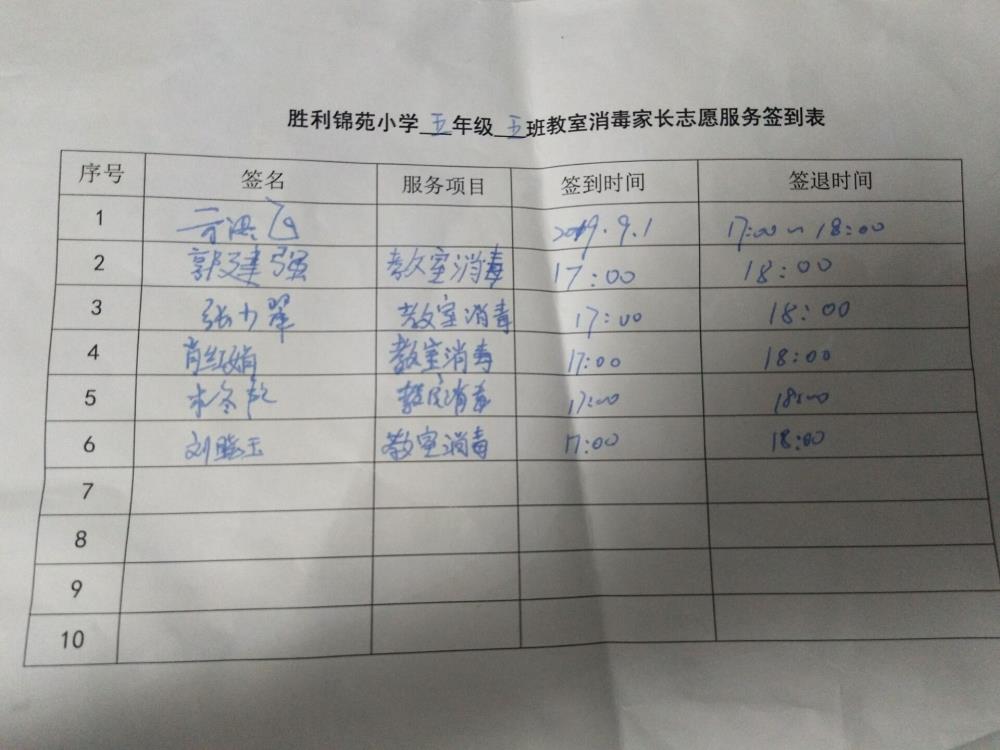 胜利锦苑小学五年级五班教室消毒家长志愿服务签到表
序号 签名 服务项目 签到时间 签退时间
1 洪飞 2019.9.1 17:00~18:00
2 郭建强 教室消毒 17:00 18:00
3 张少翠 教室消毒 17:00 18:00
4 肖红娟 教室消毒 17:00 18:00
5 教室消毒 17:00 18:00
6 刘晓玉 教室消毒 17:00 18:00
7
8
9
10